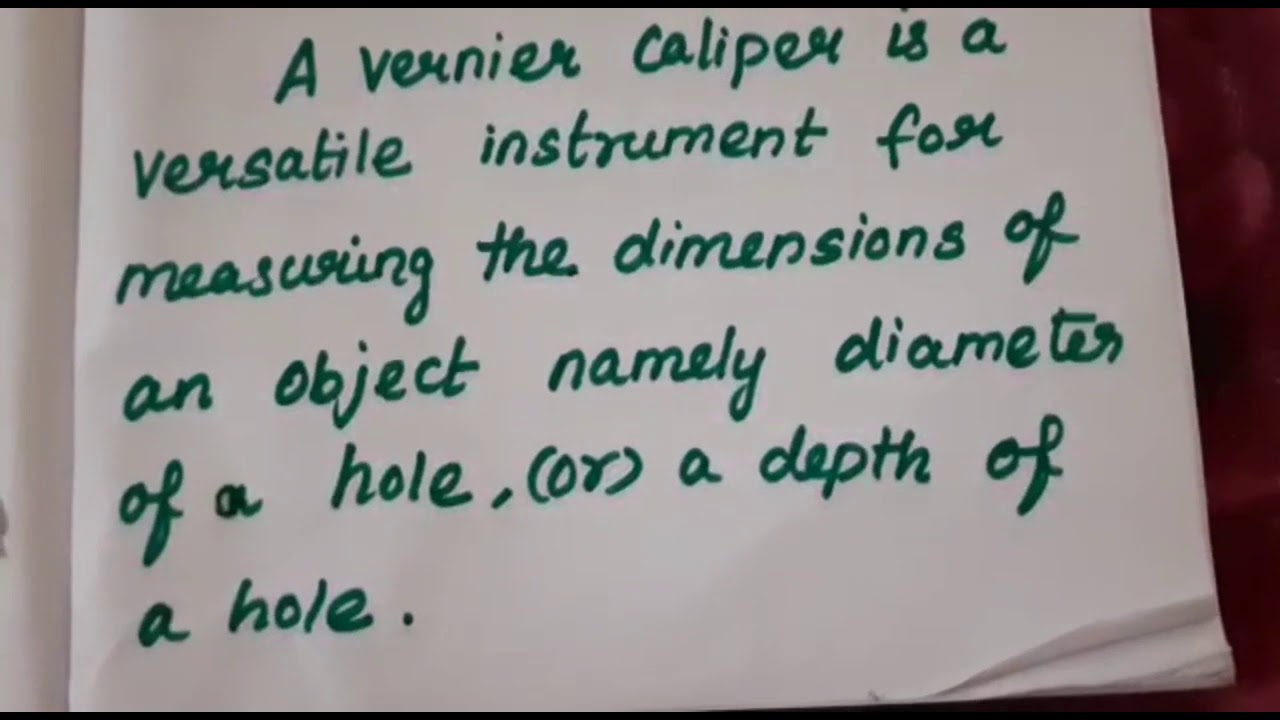 A vernier caliper is a
versatile instrument for
measuring the dimensions of
an object namely diameter
of a hole, (or) a depth of
a hole.